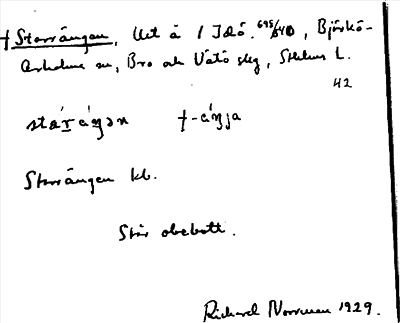 † Storrängen, Utt å 1 Idö. 695/540, Björkö-
Arholma sn, Bro och Vätö skg, Sthlms l.
42
stǽr ä́ŋən †-ä́ŋja
Storrängen kb.
Står obebott.
Richard Norrman 1929.